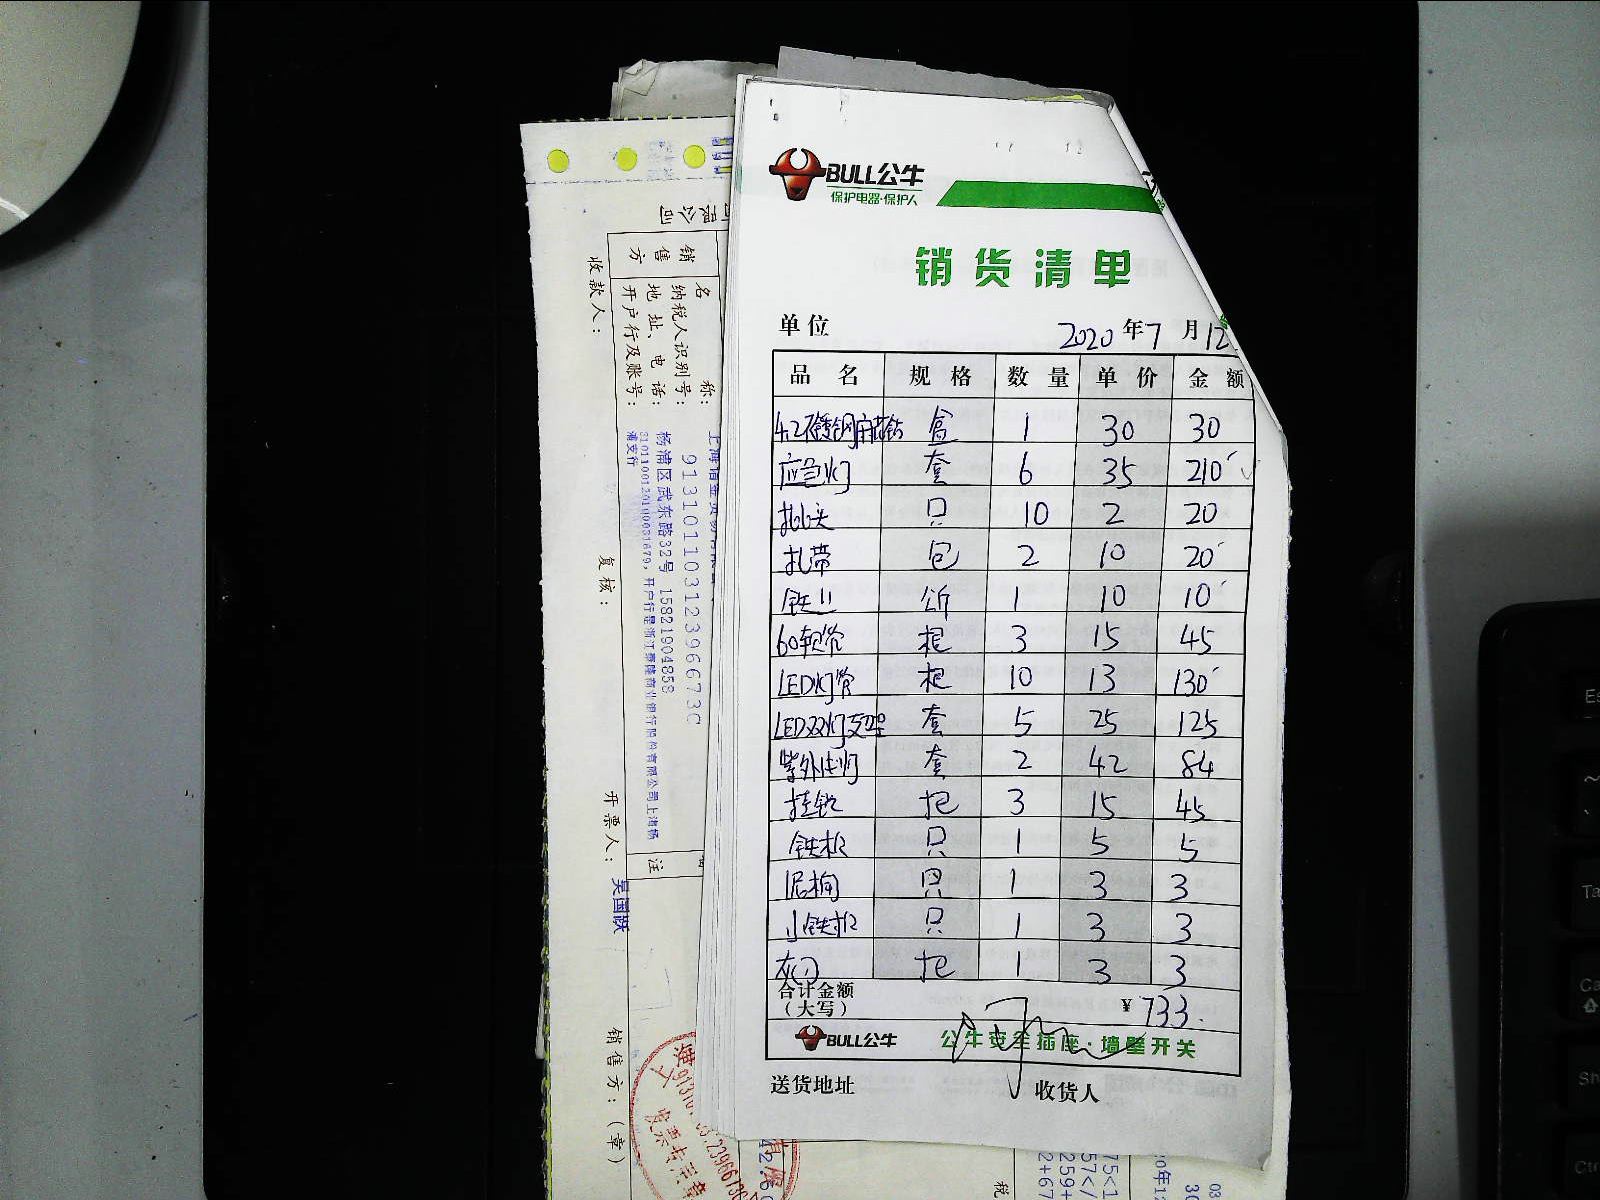 BULL公牛
保护电器·保护人
销货清单
单位 2020年7月12
品名 规格 数量 单价 金额
盒 1 30 30
应急灯 套 6 35 210
批头 只 10 2 20
扎带 包 2 10 20
公斤 1 10 10
60软管 根 3 15 45
LED灯管 根 10 13 130
LED双灯支架 套 5 25 125
紫外线灯 套 2 42 84
挂锁 把 3 15 45
铁板 只 1 5 5
泥桶 只 1 3 3
小铁板 只 1 3 3
灰刀 把 1 3 3
合计金额
(大写) ¥733.
BULL公牛 公牛安全插座·墙壁开关
送货地址 收货人
销售方
名称:
纳税人识别号: 91310110312396673C
地址、电话: 杨浦区武东路32号 15821904858
开户行及账号:
收款人:
复核:
开票人: 吴国跃
销售方:(章)
注